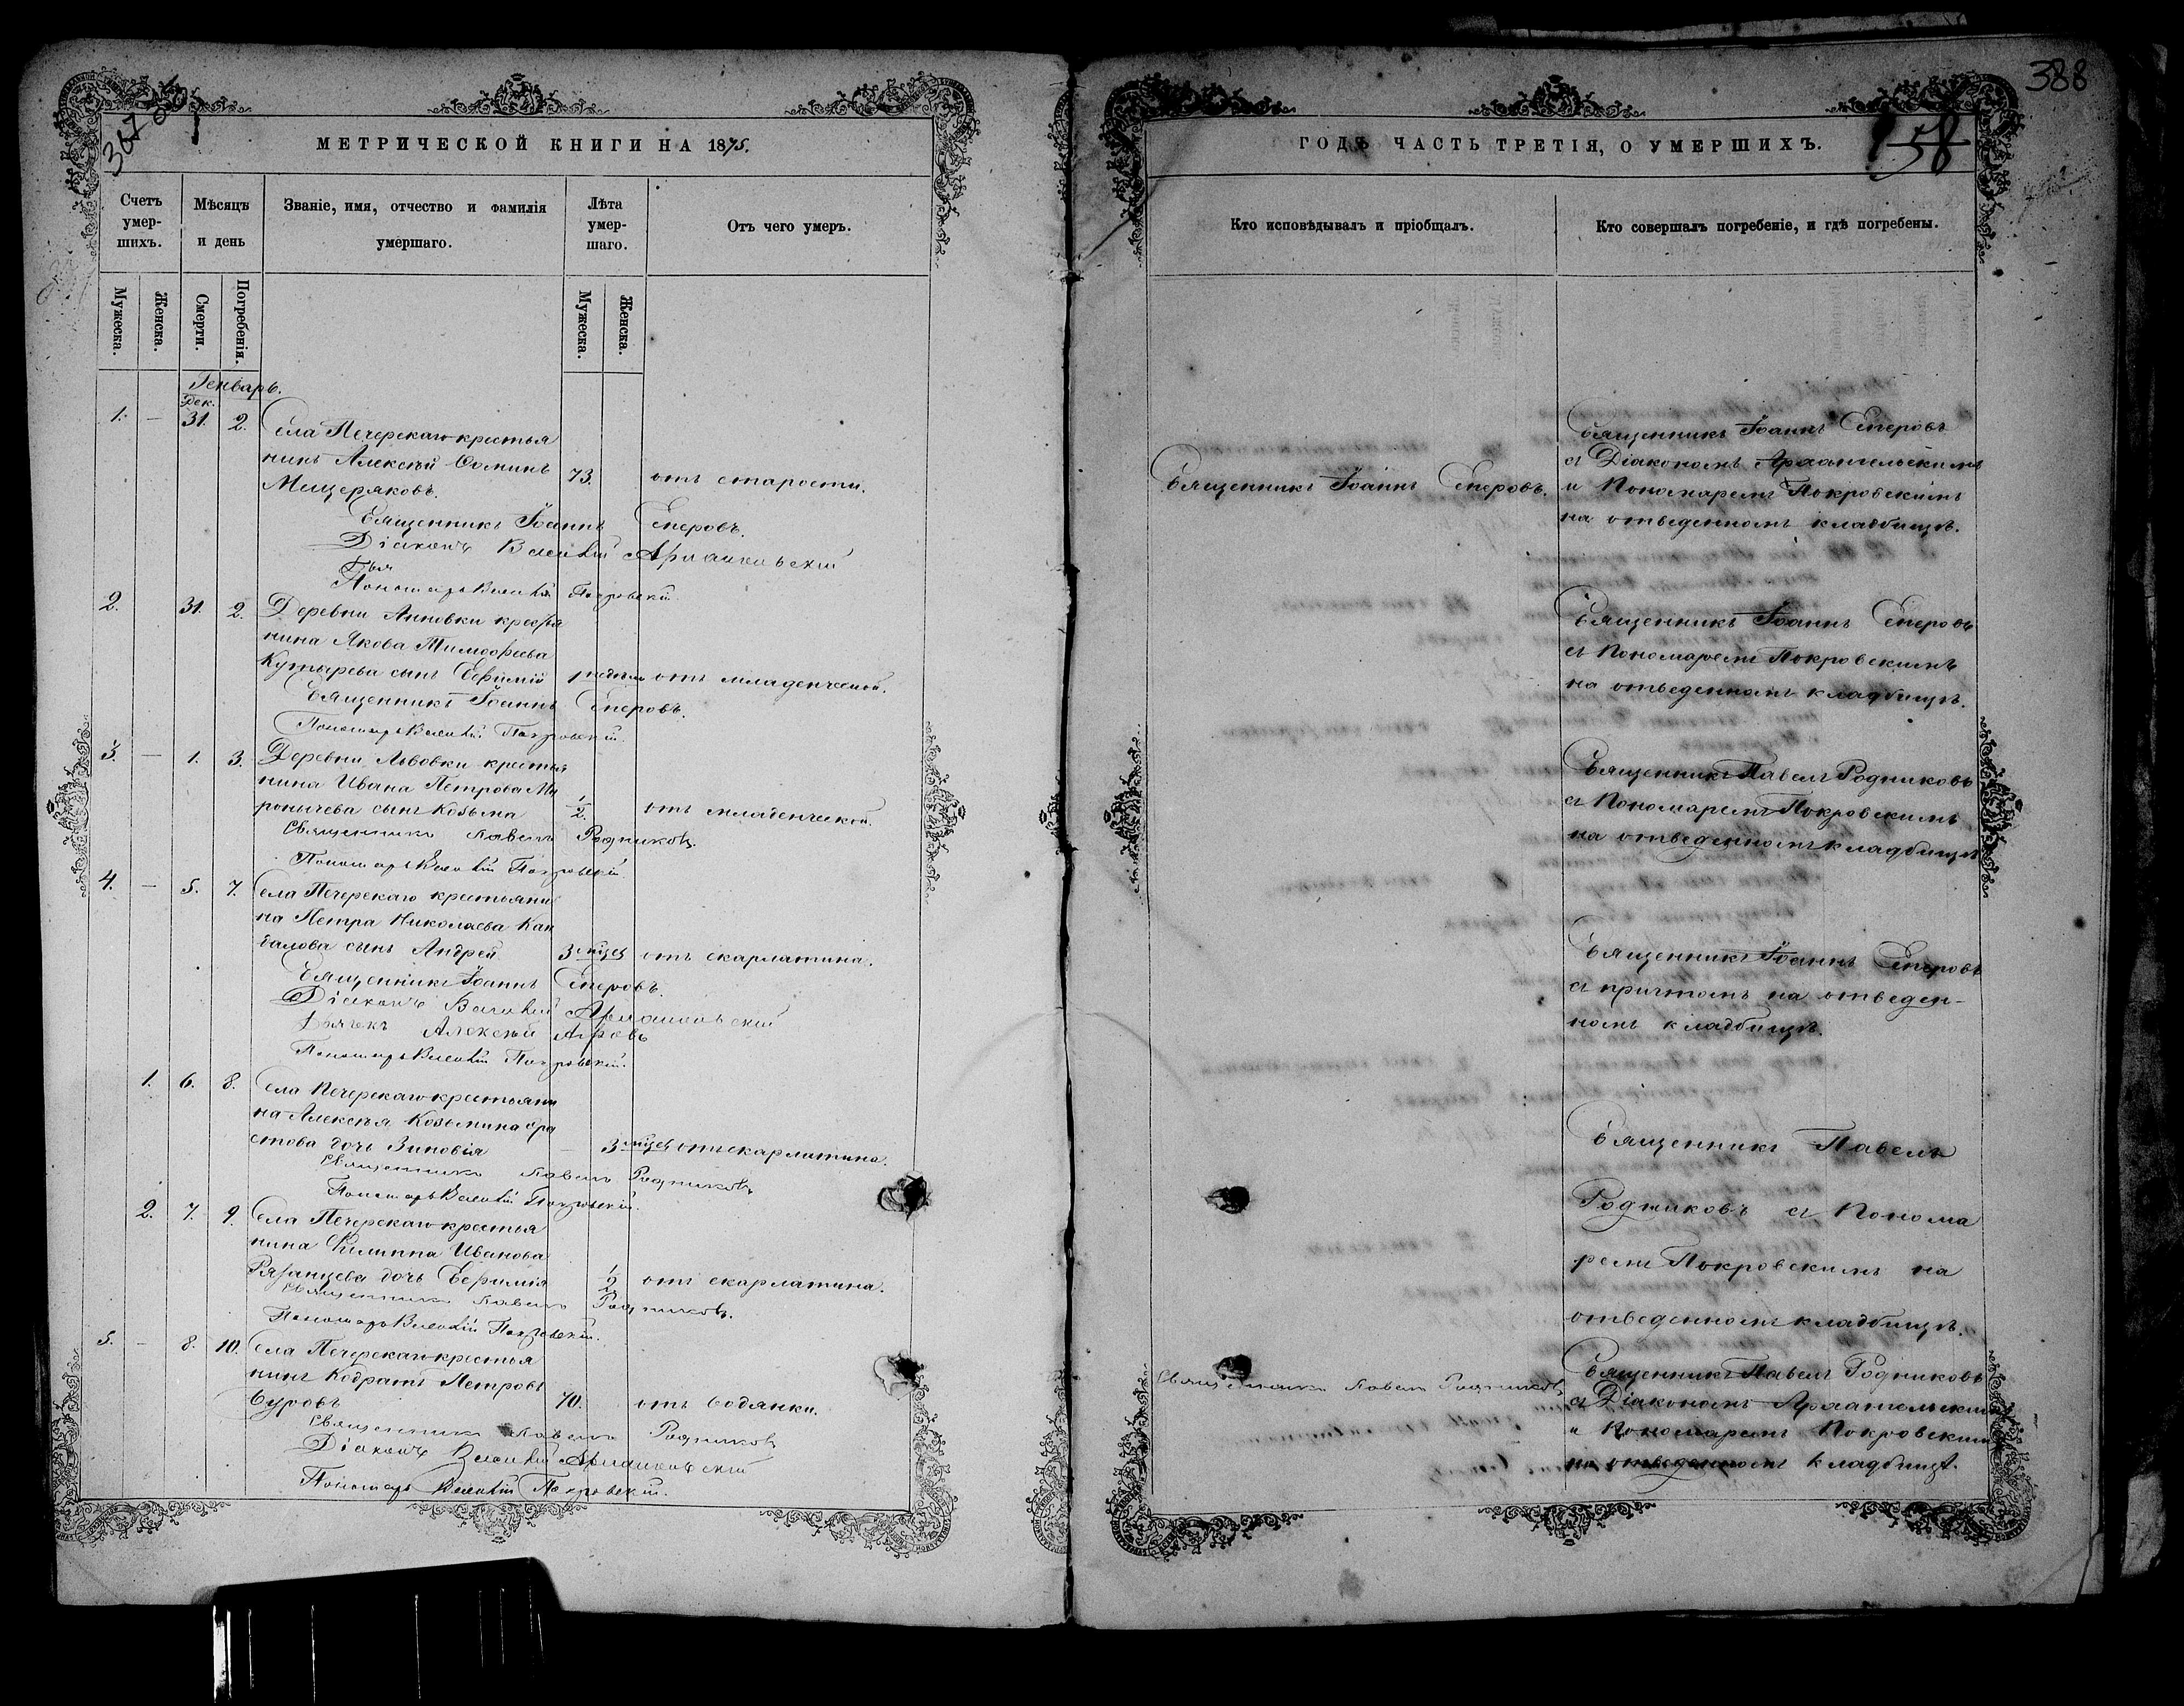 388
МЕТРИЧЕСКОЙ КНИГИ НА 1875.
Счетъ умер-шихъ.
Мѣсяцъ и день
Званіе, имя, отчество и фамилія умершаго.
Лѣта умер-шаго.
Отъ чего умеръ.
Мужеска.
Женска.
Смерти.
Погребенія.
Мужеска.
Женска.
Генварь.
Дек.
1. — 31. 2. Села Печерскаго крестья
нинъ Алексѣй Ѳоминъ
Мещеряковъ. 73. отъ старости.
Священникъ Іоаннъ Сперовъ.
Діаконъ Василій
Пономарь Василій Покровскій.
2. 31. 2. Деревни Анновки кресть
нина Якова Тимоофеева
Кутырева сынъ Евфимій отъ младенческой.
Священникъ Іоаннъ Сперовъ.
Пономарь Василій Покровскій.
3. — 1. 3. Деревни Львовки крестья
нина Ивана Петрова Ми
роничева сынъ Козьма 1/2. отъ младенческой.
Священникъ Павелъ Родниковъ.
Пономарь Василій Покровскій
4. — 5. 7. Села Печерскаго крестьяни
на Петра Николаева Кан
далова сынъ Андрей 3 мѣсц отъ скарлатина.
Священникъ Іоаннъ Сперовъ.
Діаконъ Василій
Дьячекъ Алексѣй Агровъ
Пономарь Василій Покровскій.
1. 6. 8. Села Печерскаго крестьяни
на Алексѣя Козьмина Ора
стова дочь Зиновія — 3 мѣсц отъ скарлатина.
Священникъ Павелъ Родниковъ
Пономарь Василій Покровскій.
2. 7. 9. Села Печерскаго крестья
нина Филиппа Иванова
Рязанцева дочь Евфимія 1/2 отъ скарлатина.
Священникъ Павелъ Родниковъ.
Пономарь Василій Покровскій.
5. — 8. 10. Села Печерскаго крестья
нинъ Кодратъ Петровъ
Буровъ 70. отъ водянки.
Священникъ Павелъ Родниковъ
Діаконъ Василій
Пономарь Василій Покровскій.
ГОДЪ ЧАСТЬ ТРЕТІЯ, О УМЕРШИХЪ.
58
Кто исповѣдывалъ и пріобщалъ.
Кто совершалъ погребеніе, и гдѣ погребены.
Священникъ Іоаннъ Сперовъ.
Священникъ Іоаннъ Сперовъ
съ Діакономъ Архангельскимъ
и Пономаремъ Покровскимъ
на отведенномъ кладбищѣ.
Священникъ Іоаннъ Сперовъ
съ Пономаремъ Покровскимъ
на отведенномъ кладбищѣ.
Священникъ Павелъ Родниковъ
съ Пономаремъ Покровскимъ
на отведенномъ кладбищѣ
Священникъ Іоаннъ Сперовъ
съ причтомъ на отведен-
номъ кладбищѣ.
Священникъ Павелъ
Родниковъ съ Понома
ремъ Покровскимъ на
отведенномъ кладбищѣ.
Священникъ Павелъ Родниковъ
Священникъ Павелъ Родниковъ
съ Діакономъ Архангельскимъ
и Пономаремъ Покровскимъ
на отведенномъ кладбищѣ.